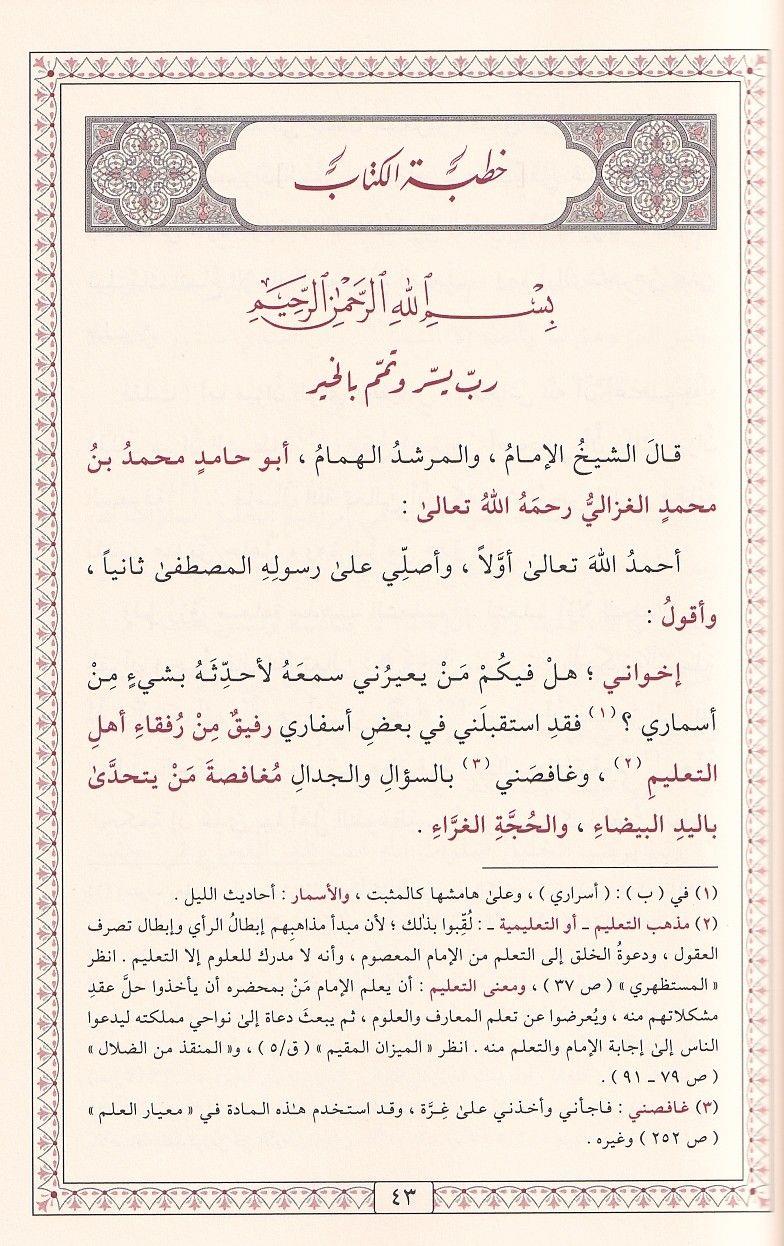 خطبة الكتاب
بِسْمِ ٱللَّهِ ٱلرَّحْمَٰنِ ٱلرَّحِيمِ
ربّ يسّر وتمّم بالخير
قالَ الشيخُ الإمامُ ، والمرشدُ الهمامُ ، أبو حامدٍ محمدُ بنُ
محمدٍ الغزاليُّ رحمَهُ اللهُ تعالىٰ :
أحمدُ اللهَ تعالىٰ أوَّلاً ، وأصلِّي علىٰ رسولِهِ المصطفىٰ ثانياً ،
وأقولُ :
إخواني ؛ هلْ فيكُمْ مَنْ يعيرُني سمعَهُ لأحدِّثَهُ بشيءٍ مِنْ
أسماري ؟(١) فقدِ استقبلَني في بعضِ أسفاري رفيقٌ مِنْ رُفقاءِ أهلِ
التعليمِ(٢) ، وغافصَني(٣) بالسؤالِ والجدالِ مُغافصةَ مَنْ يتحدَّىٰ
باليدِ البيضاءِ ، والحُجَّةِ الغرَّاءِ .
(١) في ( ب ) : ( أسراري ) ، وعلىٰ هامشها كالمثبت ، والأسمار : أحاديث الليل .
(٢) مذهب التعليم ـ أو التعليمية ـ : لُقِّبوا بذلك ؛ لأن مبدأ مذاهبهم إبطالُ الرأي وإبطال تصرف
العقول ، ودعوةُ الخلق إلى التعلم من الإمام المعصوم ، وأنه لا مدرك للعلوم إلا التعليم . انظر
« المستظهري » ( ص ٣٧ ) ، ومعنى التعليم : أن يعلم الإمام مَنْ بمحضره أن يأخذوا حلَّ عقدِ
مشكلاتهم منه ، ويُعرضوا عن تعلم المعارف والعلوم ، ثم يبعثَ دعاة إلىٰ نواحي مملكته ليدعوا
الناس إلىٰ إجابة الإمام والتعلم منه . انظر « الميزان المقيم » ( ق/٥ ) ، و« المنقذ من الضلال »
( ص ٧٩ ـ ٩١ ) .
(٣) غافصني : فاجأني وأخذني علىٰ غِرَّة ، وقد استخدم هذه المادة في « معيار العلم »
( ص ٢٥٢ ) وغيره .
٤٣